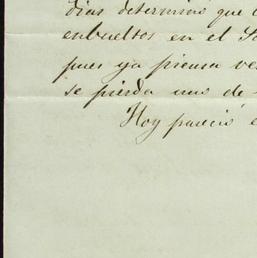 dias determino que
enbueltos en el
pues ya piensa
se pierda uno de
Hoy parecio